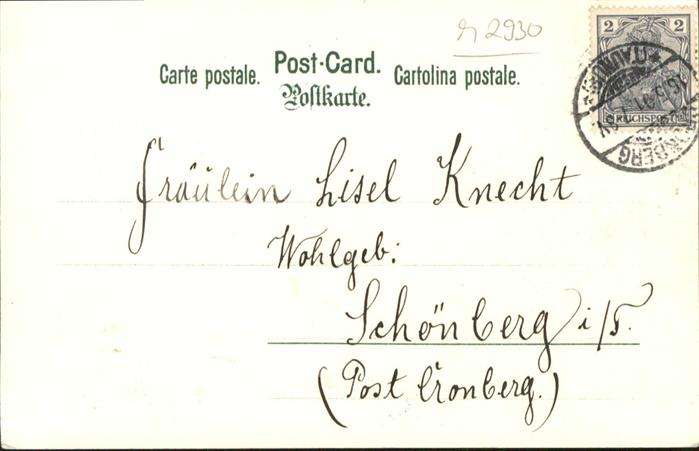 n 2930
Carte postale. Post-Card. Cartolina postale.
Postkarte.
2 2
REICHSPOST
Fräulein Lisel Knecht
Wohlgeb:
Schönberg i/T.
(Post Cronberg.)